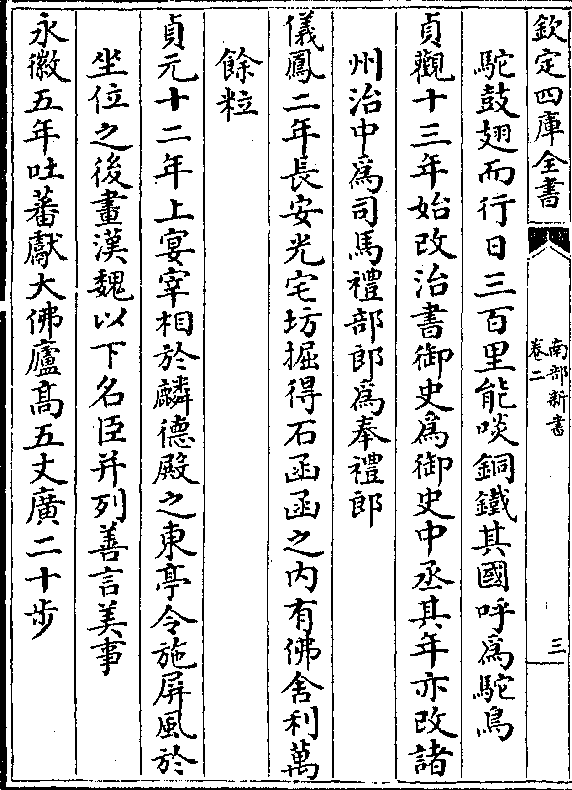 欽定四庫全書
南部新書
卷二
三
駝鼓翅而行日三百里能啖銅鐵其國呼為駝鳥
貞觀十三年始改治書御史為御史中丞其年亦改諸
州治中為司馬禮部郎為奉禮郎
儀鳳二年長安光宅坊掘得石函函之内有佛舍利萬
餘粒
貞元十二年上宴宰相於麟德殿之東亭令施屏風於
坐位之後畫漢魏以下名臣并列善言美事
永徽五年吐蕃獻大佛廬高五丈廣二十步